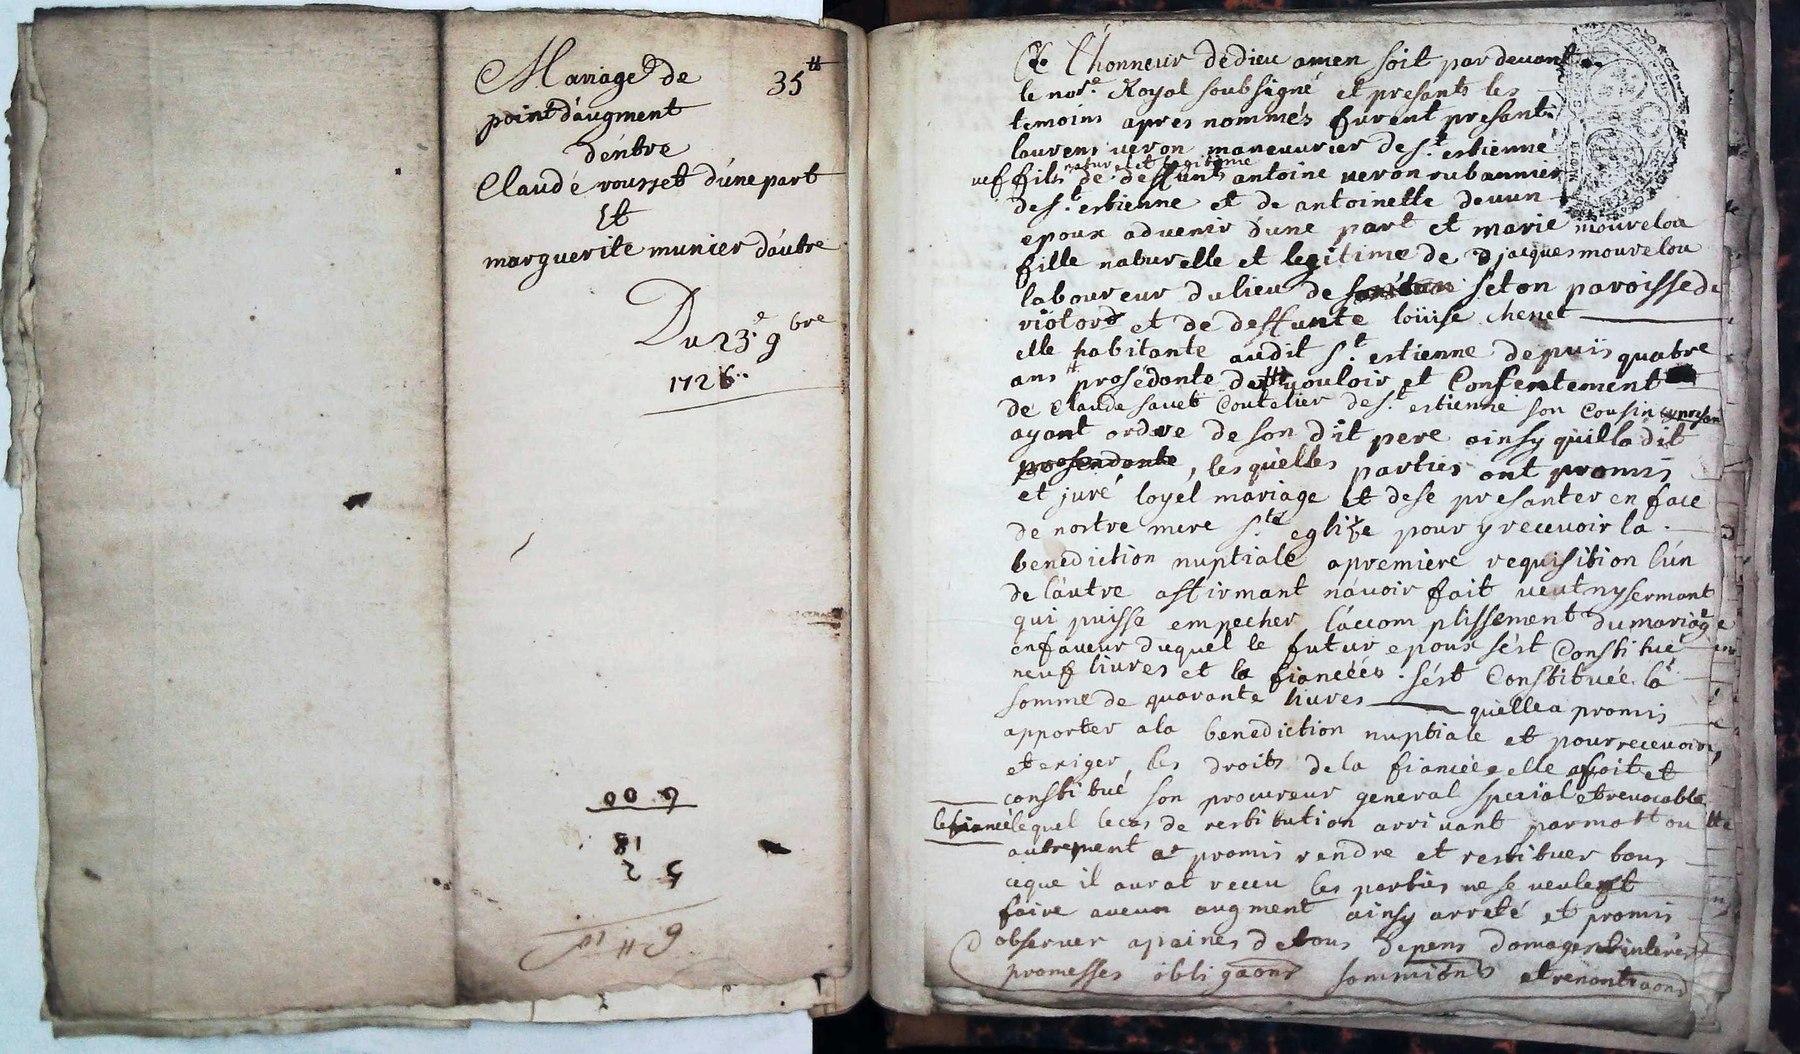 Mariage de
point d'augment
d'entre
Claude rousset d'une part
Et
marguerite munier d'autre
35 tt
Du 23e 9bre
1726
A l'honneur de dieu amen soit par devant
le nore Royal soubsigné et presants les
temoins apres nommés furent presant
laurens veron maneuvrier de st estienne
vef fils naturel et legitime de deffunts antoine veron rubannier
de st estienne et de antoinette devun
epoux advenir d'une part et marie mourelou
fille naturelle et legitime de jacques mourelou
laboureur du lieu de seton paroisse de
riotord et de deffunte loüise chenet
elle habitante audit st estienne depuis quatre
ans prosédante de vouloir et Consentement
de Claude sauet Coutelier de st estienne son Cousin
ayant ordre de son dit pere ainsy quilla dit
prosendante, lesquelles parties ont promis
et juré loyel mariage et de se presanter en face
de nostre mere ste eglize pour y recevoir la
benediction nuptiale a premiere requisition l'ún
de láutre affirmant návoir fait veut ny sermant
qui puisse empecher láccomplissement du mariage
en faveur duquel le futur epoux sést Constitué
neuf livres et la fianceés sést Constituée la
somme de quarante livres quelle a promis
apporter a la benediction nuptiale et pour recevoir
et exiger les droits de la fiancée elle a fait et
constitué son procureur general spesial et revocable
le fiancé lequel le cas de restitution arrivant par mort ou
autrement a promis rendre et restituer tous
ceque il aurat receu les parties ne se veulent
faire aucun augment ainsy arreté et promis
observer a paines de tous depens domages et interes
promesses obligaons sommions et renontiaons